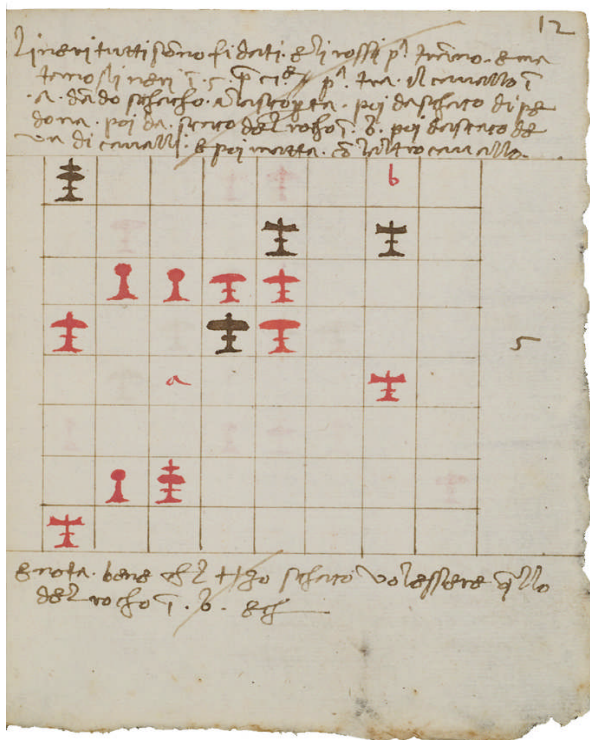 12
li neri tutti sono fidati. e li rossi pº trano. e ma
tano li neri i. 5. pº tra. il cavallo i
.a. dado schacho. a la scoperta. poi da schaco di pe
dona. poi da. scaco del rocho i. b. poi da scaco de
un di cavalli. e poi matta. laltro cavallo.
b
5
a
e nota. bene chel 3º schaco vol essere qllo
del rocho i. b. ech